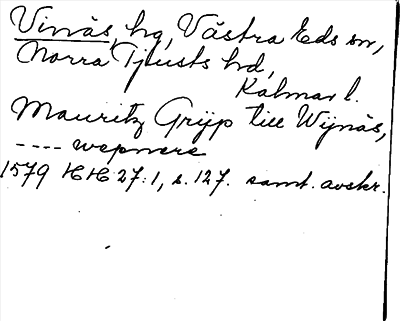 Vinäs, hg, Västra Eds sn,
Norra Tjusts hd,
Kalmar l.
Mauritz Grijp till Wijnäs,
---- wepnere
1579 HH 27:1, s. 127. samt. avskr.